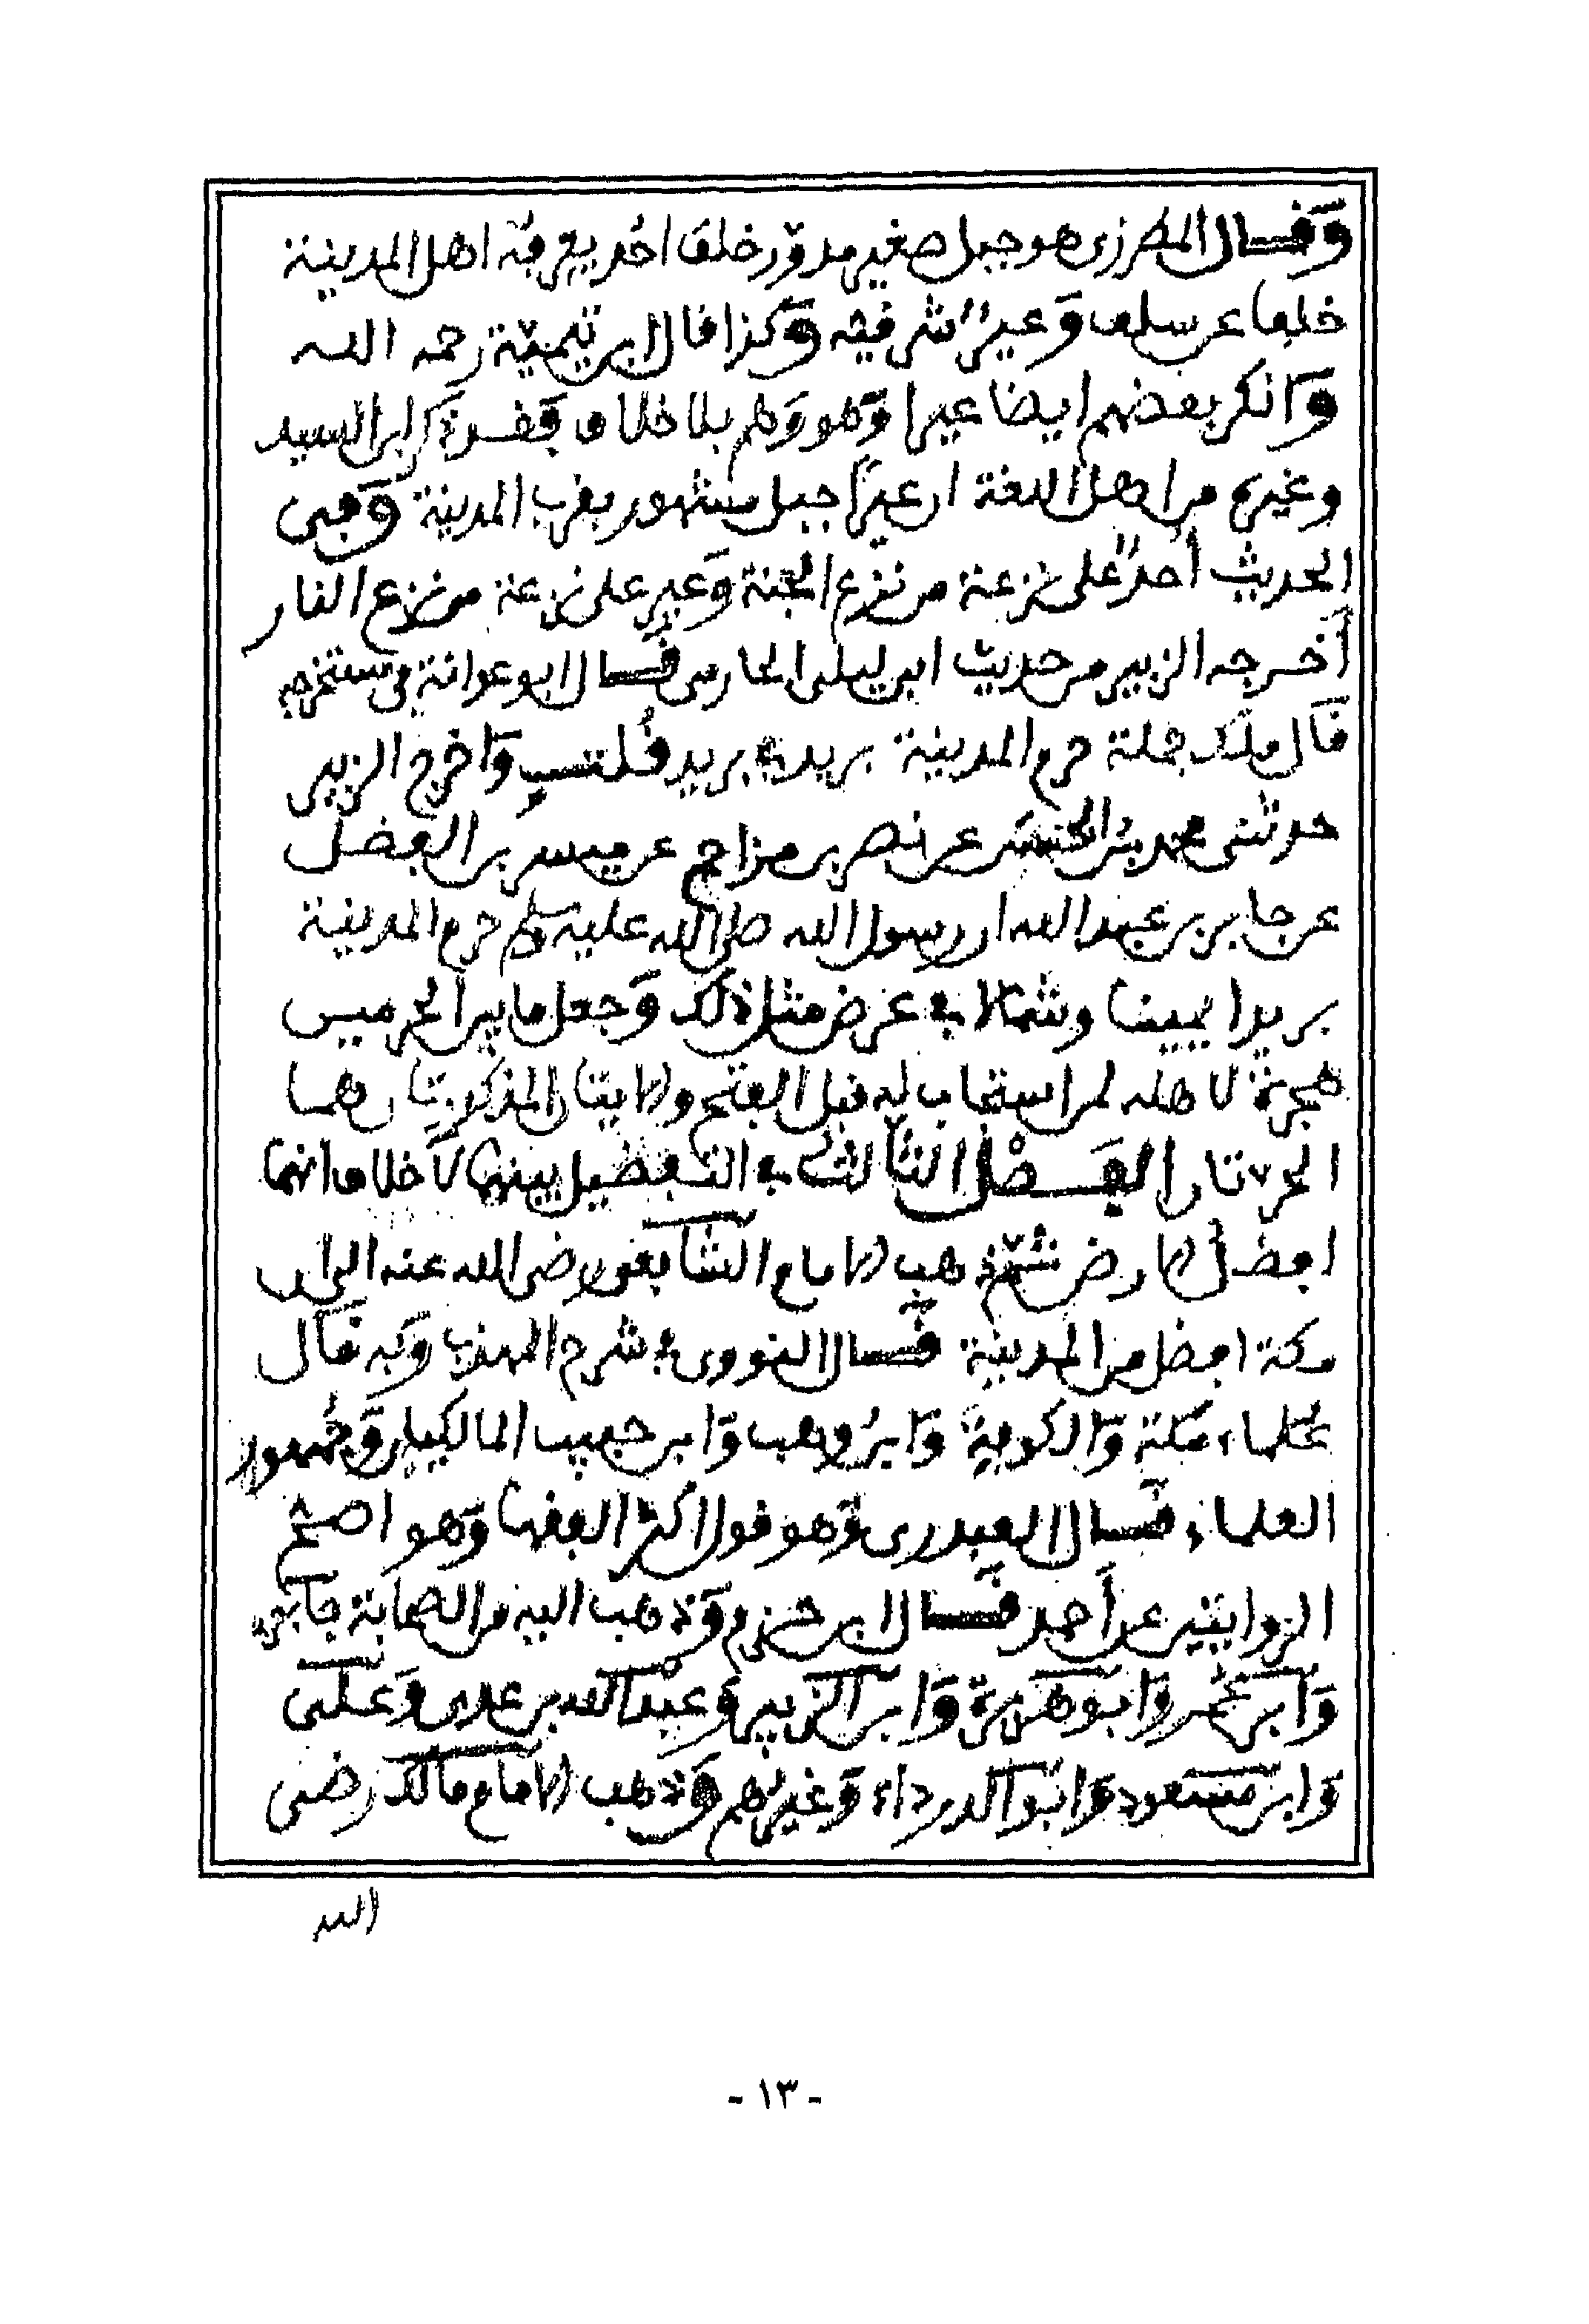 وَقَال المطرزى هو جبل صغير مدوّر خلف احُد يعرفه اهل المدينة
خلفا عن سلف وَعيرٌ شرقيه وَكذا قال ابن تيميّة رحمه الله
وَانكر بعضهم ايضا عيرا وَهو وَهم بلا خلاف فَقد ذكر ابن السيد
وغيره من اهل اللغة ان عيرًا جبل مشهور بقرب المدينة وَفى
الحديث أحدٌ على نزعة من نزع الجنة وَعير على نزعة من نزع النار
أخرجه الزبير من حديث ابى ليلى الحارثى قَال ابو عوانة فى مستخرجه
قَال ملك جملة حرم المدينة بريد فى بريد قُلت وَاخرج الزبير
حدثنى محمد بن الحسن عن نصر بن مزاحم عن عيسى بن الفضل
عن جابر بن عبد الله ان رسول الله صلى الله عليه وسلم حرم المدينة
بريدا يمينا وشمالا فى عرض مثل ذلك وَجعل ما بين الحرمين
هجرة لاهله لمن استجاب له قبل الفتح ولابتان المذكورتان هما
الحرتان الفَصْل الثالث فى التفضيل بينهما لاَ خلاف انهما
افضل الارض ثمّ ذهب الامام الشافعى رضى الله عنه الى ان
مكة افضل من المدينة قَال النووى فى شرح المهذب وَبه قال
عُلماء مَكة وَالكوفة وَابن وهب وَابن حبيب المالكيان وَجُمهور
العلماء قَال العبدرى وَهو قول اكثر الفقها وَهو اصح
الروايتين عن أحمد قَال ابن حزم وَذهب اليه من الصحابة جَابر
وَابن عُمر وَابو هريرة وَابن الزبير وَعبد الله بن عدى وَعلى
وَابن مسعود وَابو الدرداء وَغيرهم وَذهب الامام مالك رضى
الله
- ١٣ -